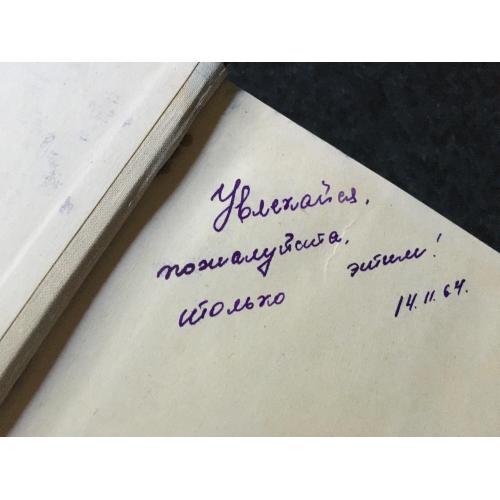 Увлекайся,
пожалуйста,
только этим!
14.11.64.